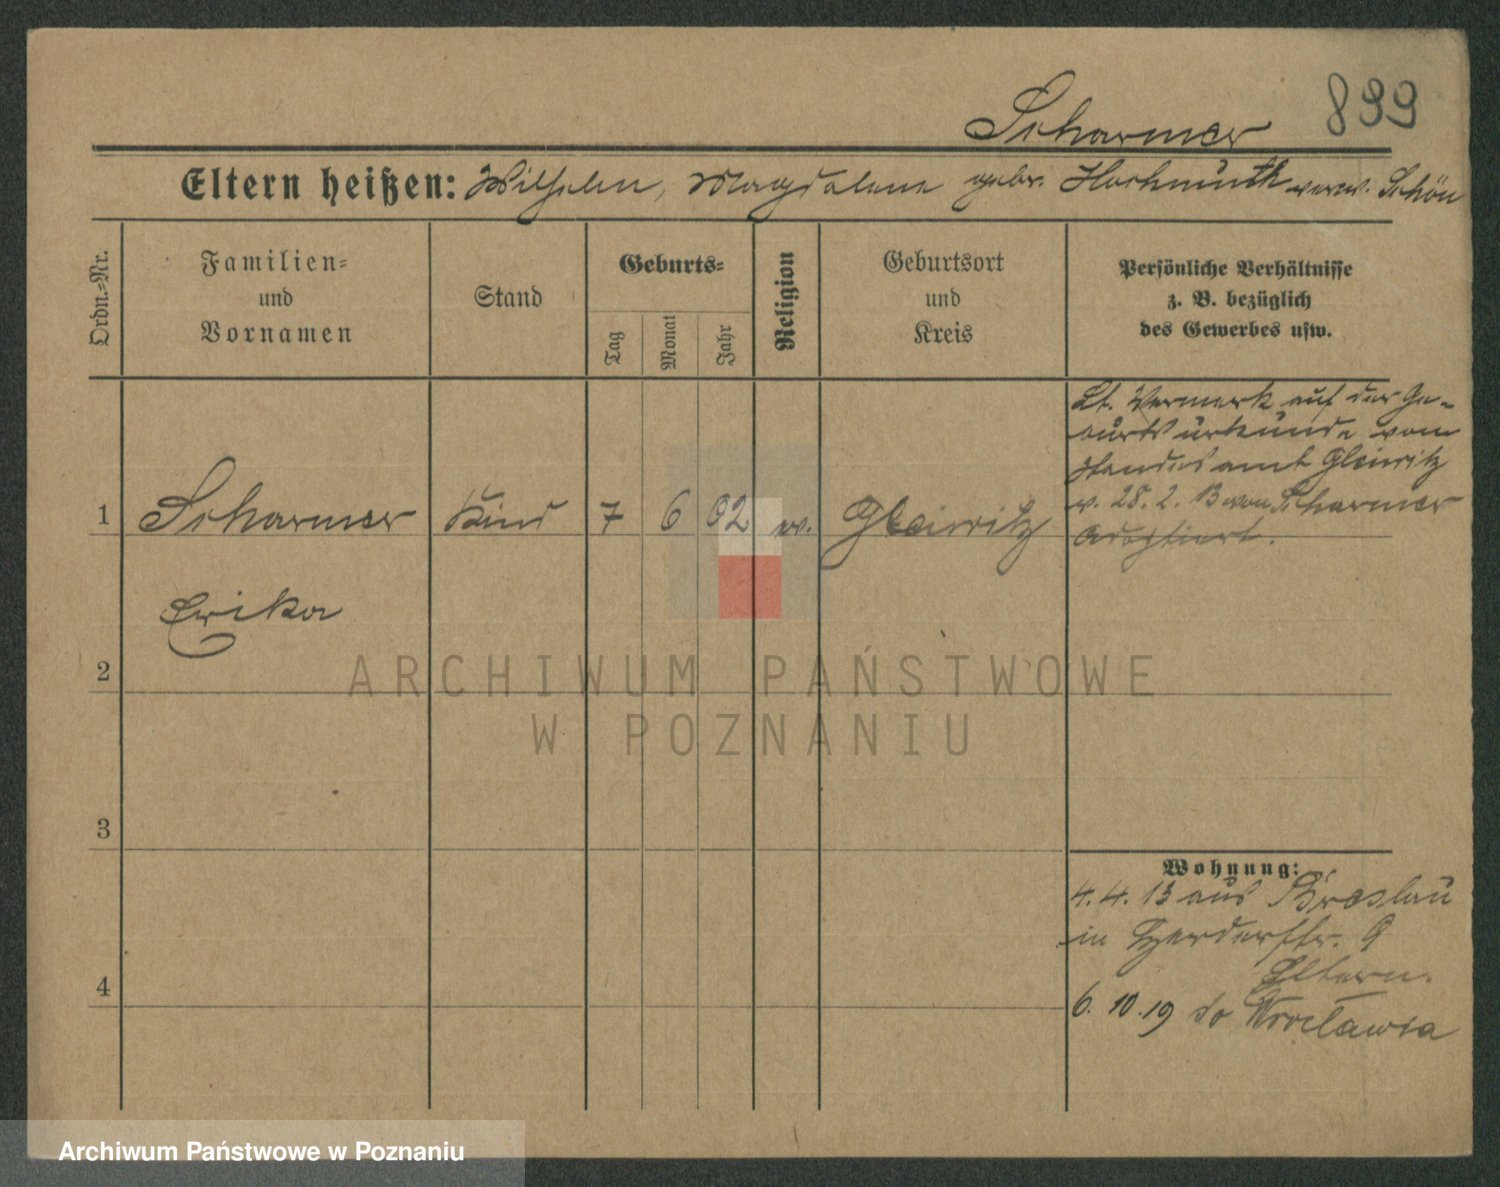 899
Scharmer
Eltern heißen: Wilhelm, Magdalene gebr. Hochmuth verw. Schön
Ordn.-Nr.
Familien-
und
Vornamen
Stand
Geburts-
Tag
Monat
Jahr
Religion
Geburtsort
und
Kreis
Persönliche Verhältnisse
z. B. bezüglich
des Gewerbes usw.
1
Scharmer Kind 7 6 02 ev. Gleiwitz
Erika
2
3
4
Lt. Vermerk auf der Ge-
burtsurkunde vom
Standesamt Gleiwitz
v. 28. 2. 13 von Scharmer
adoptiert.
Wohnung:
4. 4. 13 aus Breslau
in Herderstr. 9
Eltern.
6. 10. 19 do Wrocławia
ARCHIWUM PAŃSTWOWE
W POZNANIU
Archiwum Państwowe w Poznaniu